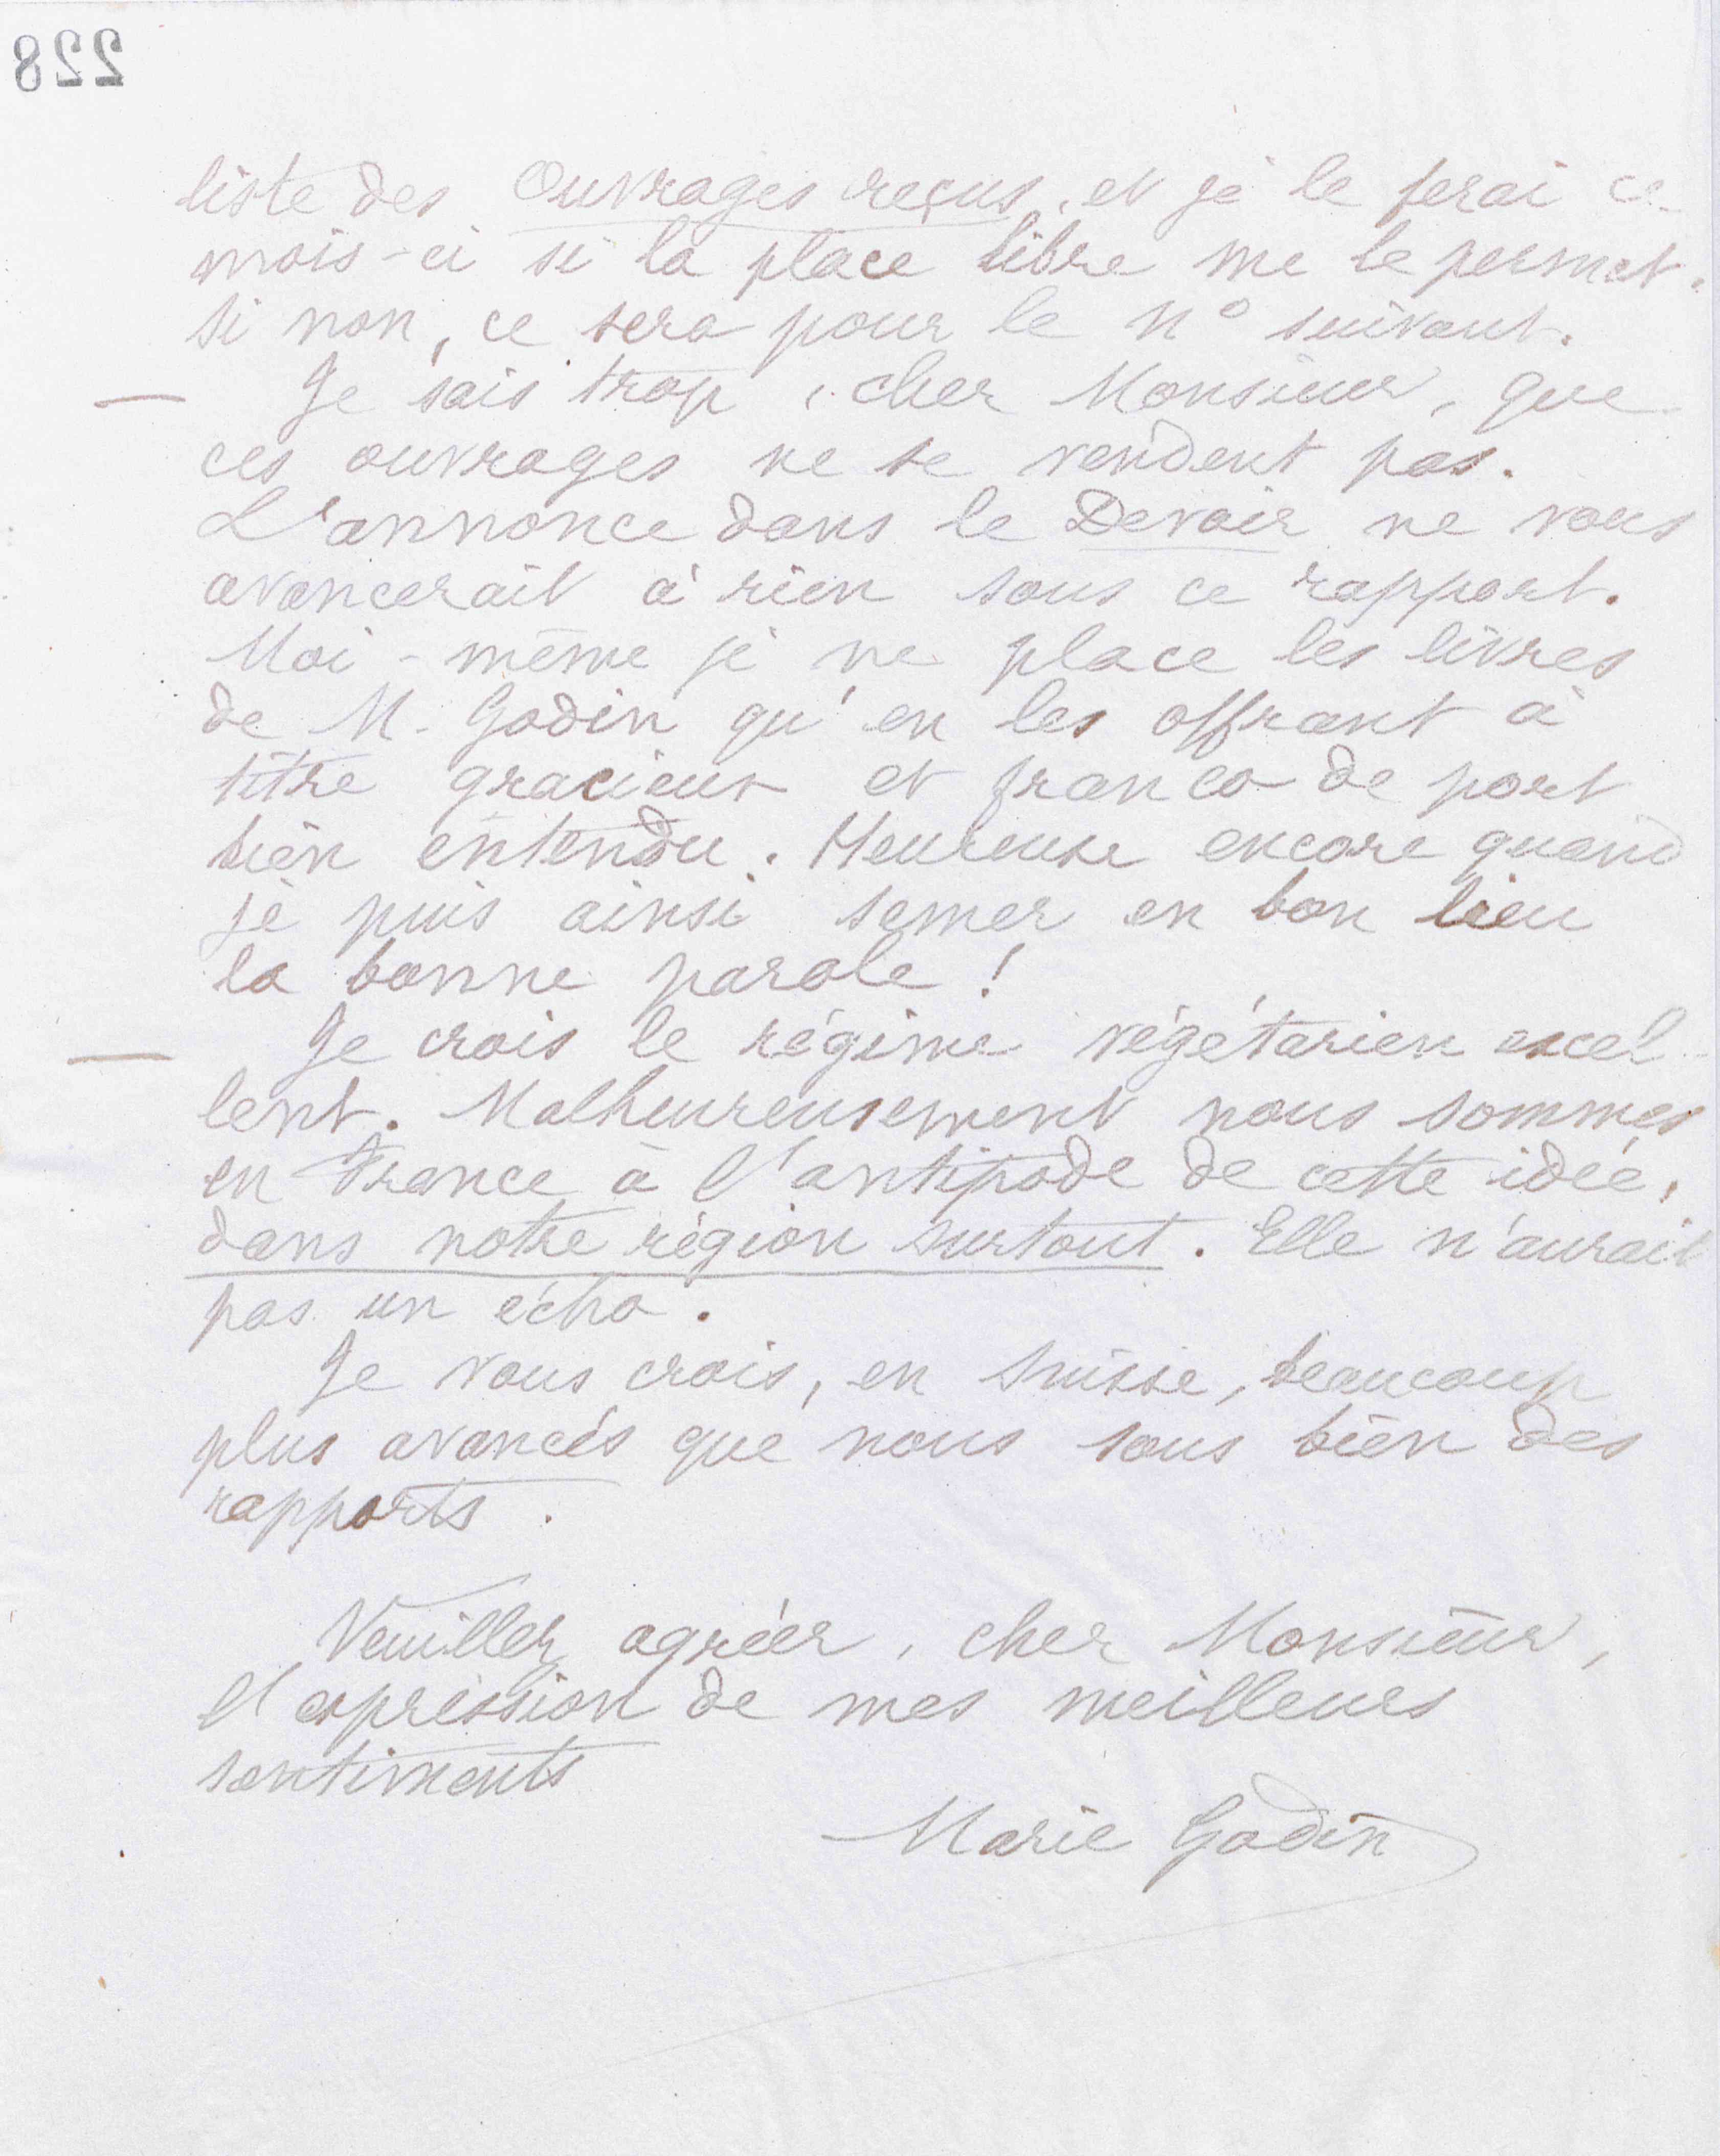 228
liste des Ouvrages reçus, et je le ferai ce
mois-ci si la place libre me le permet.
si non, ce sera pour le no suivant.
Je sais trop, cher Monsieur, que
ces ouvrages ne se vendent pas.
L'annonce dans le Devoir ne vous
avancerait à rien sous ce rapport.
Moi-même je ne place les livres
de M. Godin qu'en les offrant à
titre gracieux et franco de port
bien entendu. Heureuse encore quand
je puis ainsi semer en bon lieu
la bonne parole !
Je crois le régime végétarien excel-
lent. Malheureusement nous sommes
en France à l'antipode de cette idée,
dans notre région surtout. Elle n'aurait
pas un écho.
Je vous crois, en Suisse, beaucoup
plus avancés que nous sous bien des
rapports.
Veuillez agréer, cher Monsieur,
l'expression de mes meilleurs
sentiments
Marie Godin